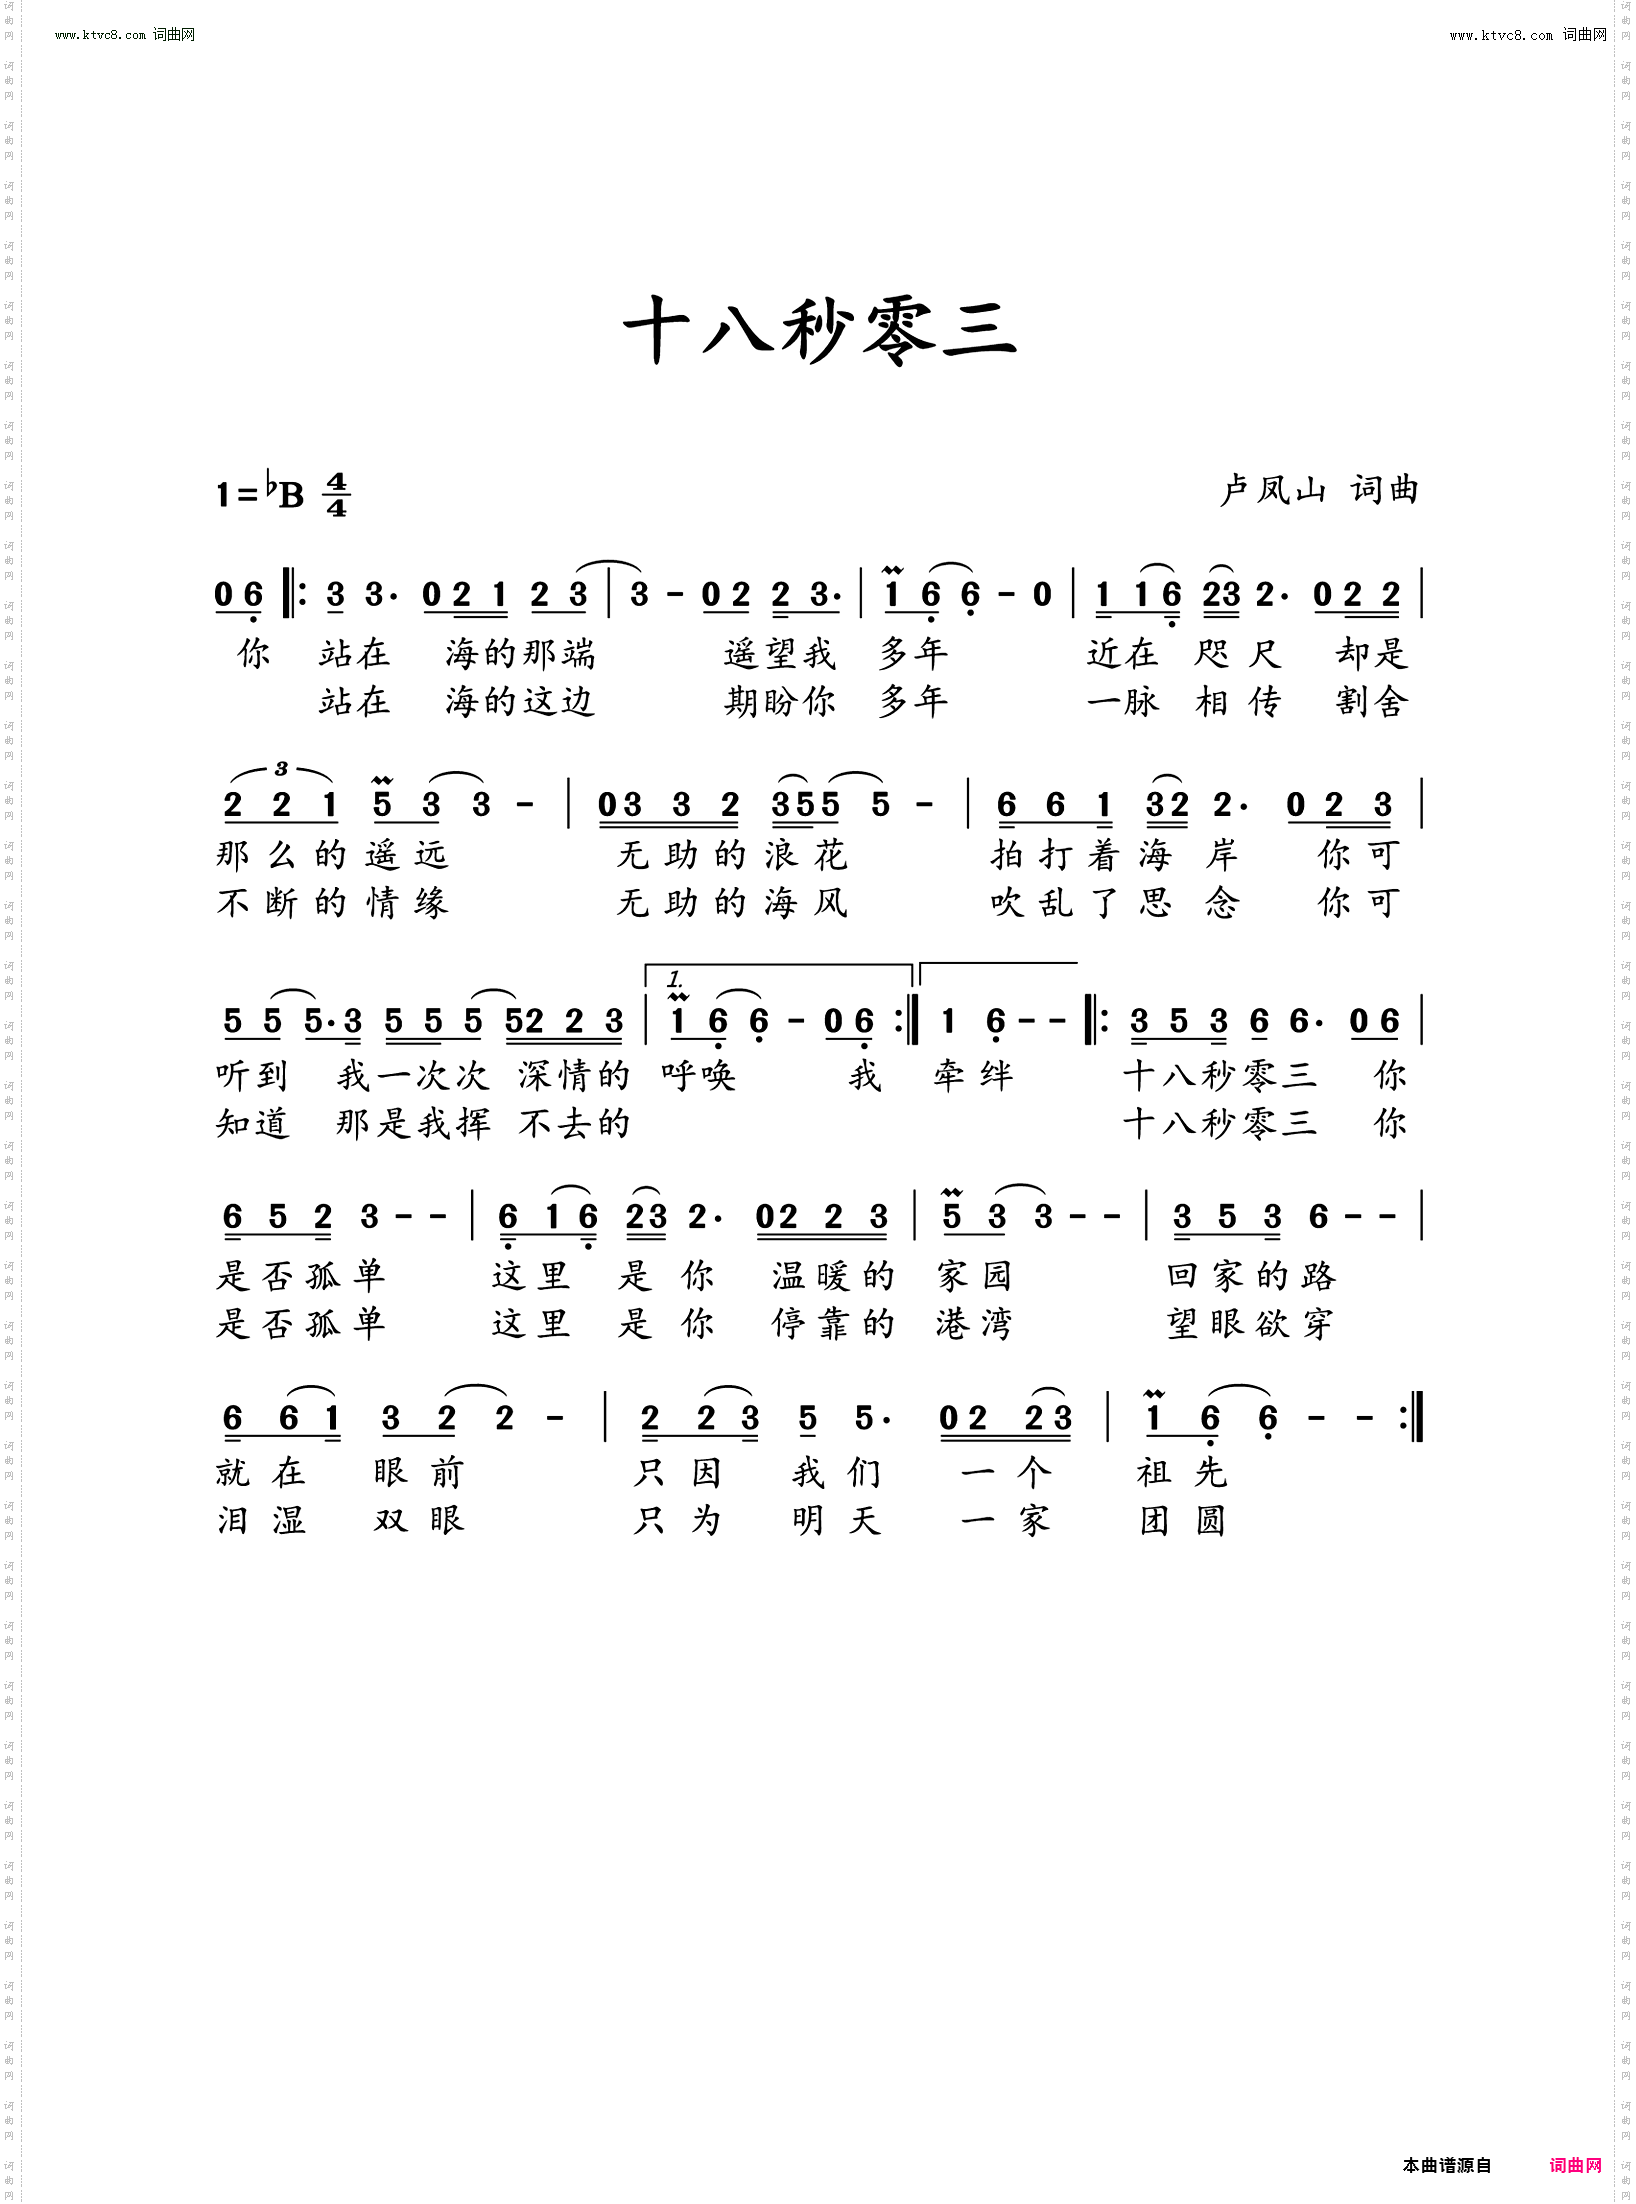 www.ktvc8.com 词曲网
www.ktvc8.com 词曲网
十八秒零三
1=♭B 4/4
卢凤山 词曲
0 6 ‖: 3 3· 0 2 1 2 3 | 3 - 0 2 2 3· | 1 6 6 - 0 | 1 1 6 2 3 2· 0 2 2 |
你 站在 海的那端 遥望我 多年 近在 咫尺 却是
站在 海的这边 期盼你 多年 一脉 相传 割舍
3
2 2 1 5 3 3 - | 0 3 3 2 3 5 5 5 - | 6 6 1 3 2 2· 0 2 3 |
那么的遥远 无助的浪花 拍打着海岸 你可
不断的情缘 无助的海风 吹乱了思念 你可
1.
5 5 5· 3 5 5 5 5 2 2 3 | 1 6 6 - 0 6 :‖ 1 6 - - ‖: 3 5 3 6 6· 0 6 |
听到 我一次次 深情的 呼唤 我 牵绊 十八秒零三 你
知道 那是我挥 不去的 十八秒零三 你
6 5 2 3 - - | 6 1 6 2 3 2· 0 2 2 3 | 5 3 3 - - | 3 5 3 6 - - |
是否孤单 这里 是你 温暖的 家园 回家的路
是否孤单 这里 是你 停靠的 港湾 望眼欲穿
6 6 1 3 2 2 - | 2 2 3 5 5· 0 2 2 3 | 1 6 6 - - :‖
就在 眼前 只因 我们 一个 祖先
泪湿 双眼 只为 明天 一家 团圆
本曲谱源自 词曲网